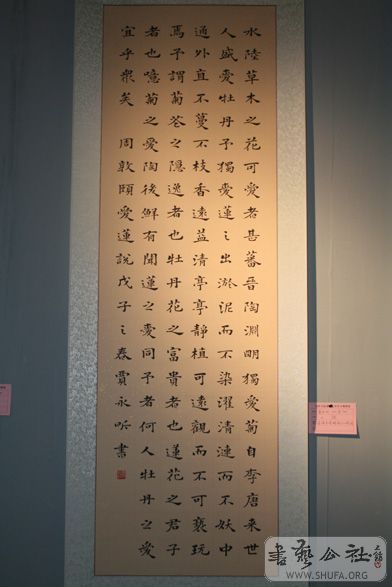 水陸草木之花可愛者甚蕃晉陶淵明獨愛菊自李唐来世
人盛愛牡丹予獨愛蓮之出淤泥而不染濯清漣而不妖中
通外直不蔓不枝香遠益清亭亭靜植可遠觀而不可褻玩
焉予謂菊花之隱逸者也牡丹花之富貴者也蓮花之君子
者也噫菊之愛陶後鮮有聞蓮之愛同予者何人牡丹之愛
宜乎眾矣 周敦頤愛蓮說戊子之春賈永昕書
書藝公社
WWW.SHUFA.ORG